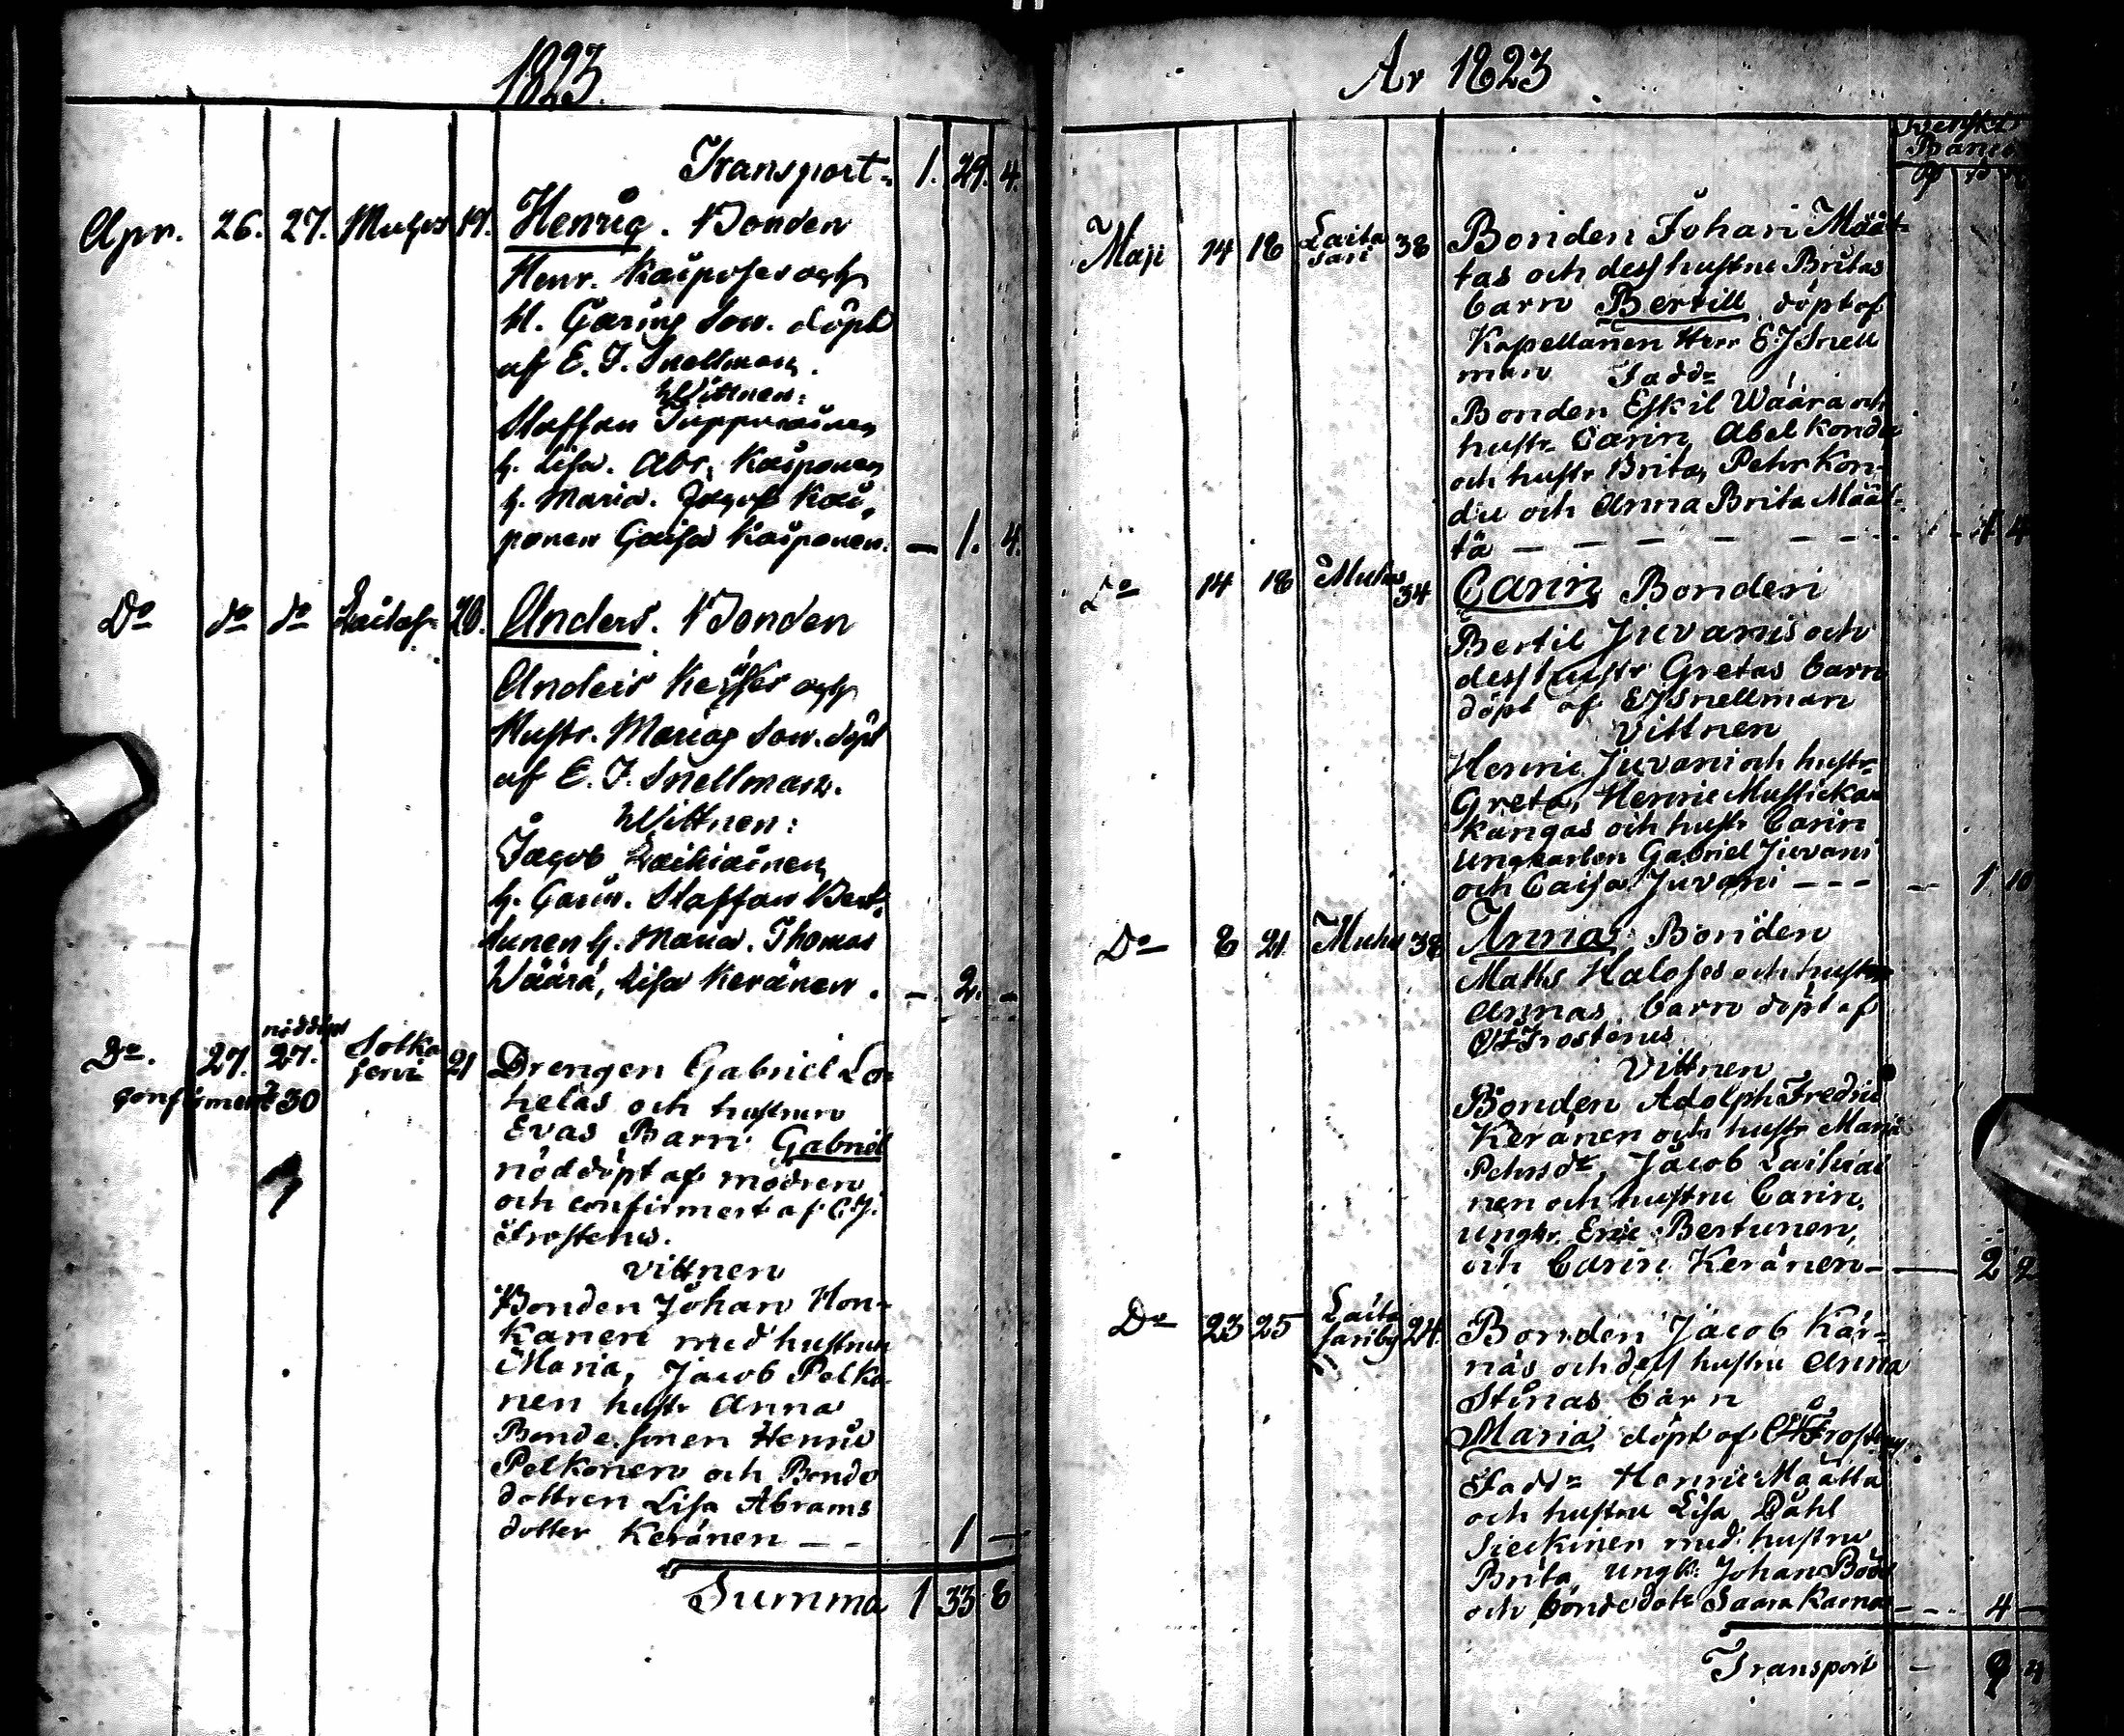 1823.
Transport 1. 29. 4.
Apr. 26. 27. Muhos 19. Henric. Bonden
Henr. Kaiposes och
H. Carins Son. döpt
af E. J. Snellman.
Wittnen:
Staffan
h. Lisa. Abr. Kaiponen
h. Maria. Jacob Kai-
ponen Caisa Kaiponen. — 1. 4.
Do do do 20. Anders. Bonden
Anders och
Hustr. Marias Son. döpt
af E. J. Snellman.
Wittnen:
Jacob Laihiainen
h. Carin. Staffan Bert-
tunen h. Maria. Thomas
Wäärä, Lisa Keränen. — 2. —
Do. 27. nöddöpt 27. Sotka
jervi 21 Drengen Gabriel Lo-
confirmert 30 helas och hustrun
Evas Barn Gabriel
nöddöpt af modren
och confirmert af C. J.
Frostenus.
vittnen
Bonden Johan Hon-
kanen med hustrun
Maria, Jacob Pelko-
nen hustr Anna
Bondesonen Henric
Pelkonen och Bonde
dottren Lisa Abrams
dotter Keränen — — 1 —
Summa 1 33 8
Ar 1823
Banco
Maji 14 18 Laita
sari 38 Bonden Johan Määt-
tas och dess hustru Britas
barn Bertill döpt af
Kapellanen Herr E J Snell
man Fadd
Bonden Eskil Wäära och
hustr Carin, Abel Kondu
och hustr Brita, Pehr Kon-
du och Anna Brita Määt-
tä — — — — — — 4
Do 14 18 Muhos 34 Carin Bonden
Bertil Juvanis och
dess hustr Gretas barn
döpt af E J Snellman
Vittnen
Henric Juvani och hustr
Greta, Henric Mustickan
kangas och hustr Carin
ungkarlen Gabriel Juvani
och Caisa Juvani — — — — 1 10
Do 8 21 Muhos 38 Anna Bonden
Matts Haloses och hustr
Annas barn döpt af
Frostenus
Vittnen
Bonden Adolph Fredric
Keränen och hustr Maria
Pehrsdr, Jacob Laihiai
nen och hustru Carin,
ungkr. Eric Bertunen,
och Carin Keränen — — 2 2
Do 23 25 Laita
sariby 24. Bonden Jacob Kär-
näs och dess hustru Anna
Stinas barn
Maria döpt af Frostenus
Fadd Henric Määtta
och hustru Lisa, Påhl
Sieckinen med hustru
Brita, ungk: Johan
och bondedotr Saara Karna — — 4 —
Transport — 9 4